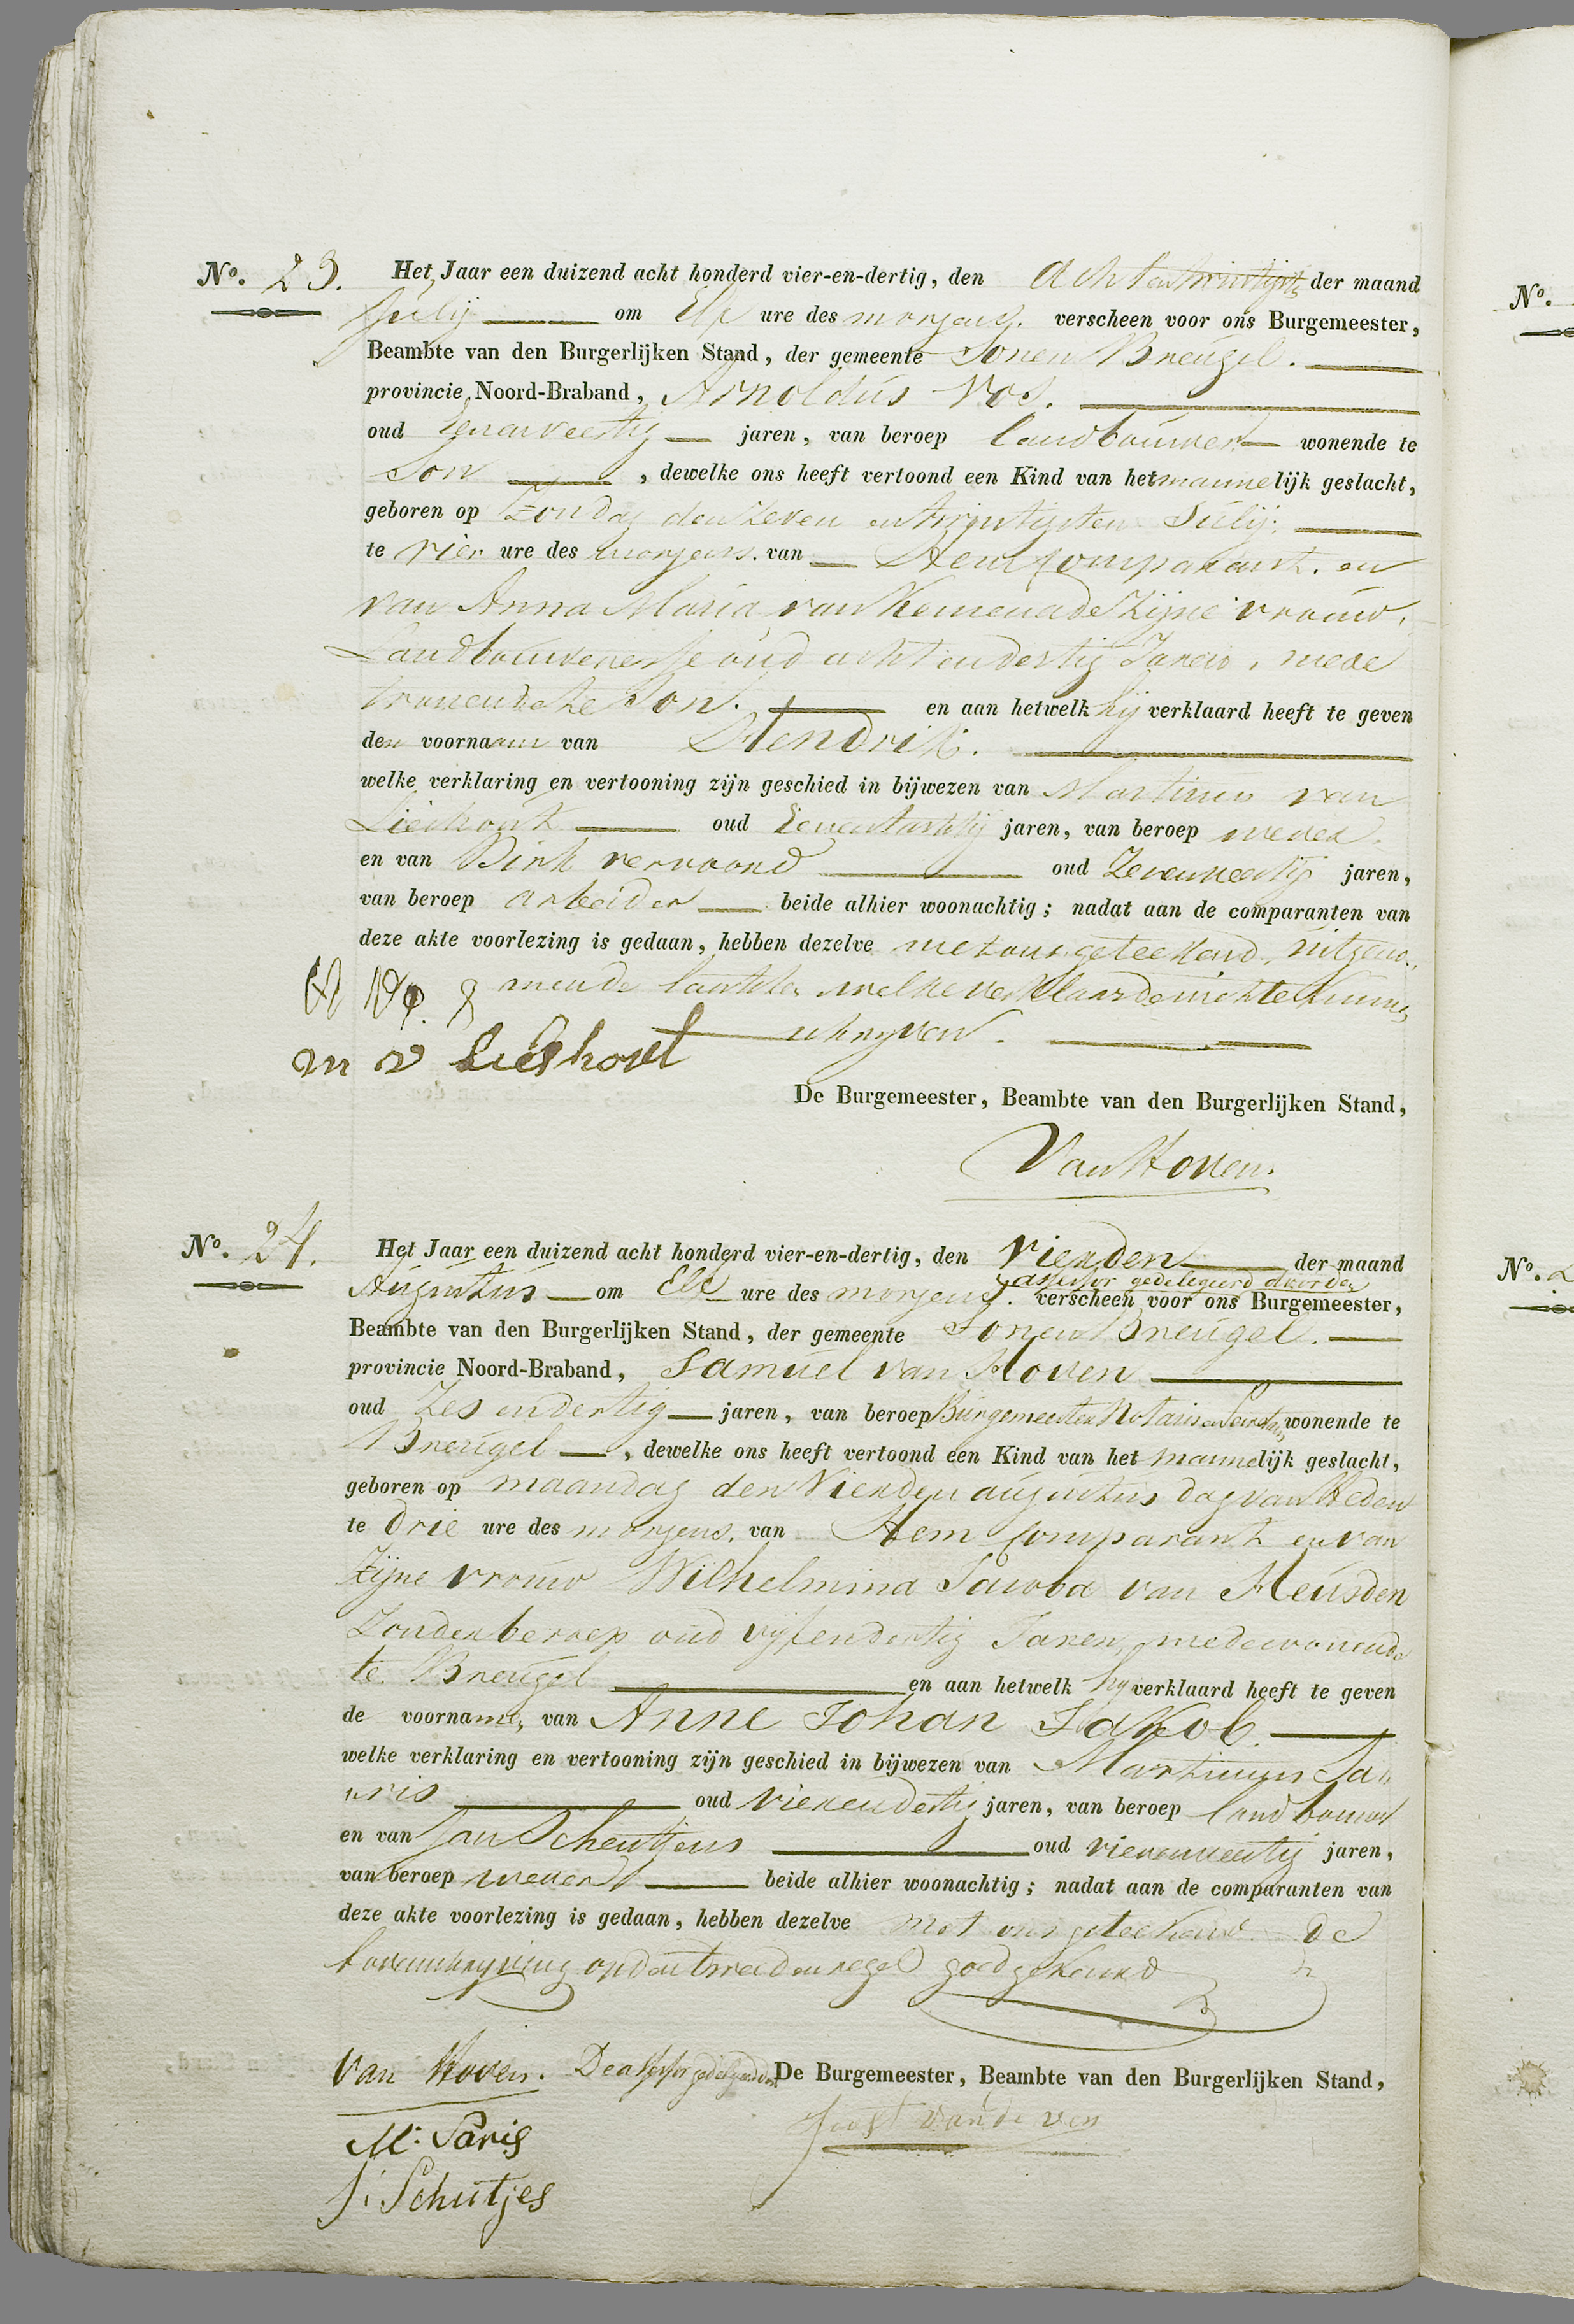 No. 23. Het Jaar een duizend acht honderd vier-en-dertig, den Acht en twintigste der maand
Julij om Elf ure des morgens. verscheen voor ons Burgemeester,
Beambte van den Burgerlijken Stand, der gemeente Son en Breugel.
provincie Noord-Braband, Arnoldus Vos.
oud jaren, van beroep landbouwer wonende te
Son , dewelke ons heeft vertoond een Kind van het mannelijk geslacht,
geboren op Zondag den Zeven en twintigsten Julij.
te vier ure des morgens. van Hem Comparant. en
van Anna Maria van Kemenade Zijne vrouw.
Landbouweresse oud acht en dertig Jaren, mede
wonende te Son. en aan hetwelk hij verklaard heeft te geven
den voornaam van Hendrik.
welke verklaring en vertooning zijn geschied in bijwezen van Martinus van
Lieshout oud jaren, van beroep wever.
en van Dirk vervoord oud Zevenveertig jaren,
van beroep arbeider beide alhier woonachtig; nadat aan de comparanten van
deze akte voorlezing is gedaan, hebben dezelve met ons geteekend, uitgeno-
mende laatste welke verklaarde niet te kunnen
schryven.
A Vos
m v Lieshout
De Burgemeester, Beambte van den Burgerlijken Stand,
Van Hoven.
No. 24. Het Jaar een duizend acht honderd vier-en-dertig, den vierden der maand
assessor gedelegeerd door den
Augustus om Elf ure des morgens. verscheen voor ons Burgemeester,
Beambte van den Burgerlijken Stand, der gemeente Son en Breugel.
provincie Noord-Braband, Samuel van Hoven
oud Zes en dertig jaren, van beroep Burgemeester Notaris en Secretaris wonende te
Breugel , dewelke ons heeft vertoond een Kind van het mannelijk geslacht,
geboren op maandag den Vierden augustus dag van Heden
te drie ure des morgens. van Hem Comparant en van
Zijne vrouw Wilhelmina Jacoba van Heusden
Zonder beroep oud vyfendertig Jaren, mede wonende
te Breugel en aan hetwelk hy verklaard heeft te geven
de voorname, van Anne Johan Jakob.
welke verklaring en vertooning zijn geschied in bijwezen van Martinus Sa
ris oud vierendertig jaren, van beroep landbouwer
en van Jan Scheutjens oud vierenveertig jaren,
van beroep wever beide alhier woonachtig; nadat aan de comparanten van
deze akte voorlezing is gedaan, hebben dezelve met ons geteekend de
bovenschryving op den tweeden regel goedgekeurd
van Hoven. De assessor gedelegeerd door De Burgemeester, Beambte van den Burgerlijken Stand,
Joost van de ven
M. Saris
J. Schutjes
No.
No. 2